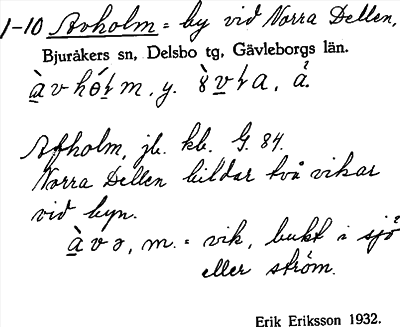 1-10 Avholm = by vid Norra Dellen,
Bjuråkers sn, Delsbo tg, Gävleborgs län.
y. å.
Afholm, jb. kb. G. 84.
Norra Dellen bildar två vikar
vid byn.
m. = vik, bukt i sjö
eller ström.
Erik Eriksson 1932.